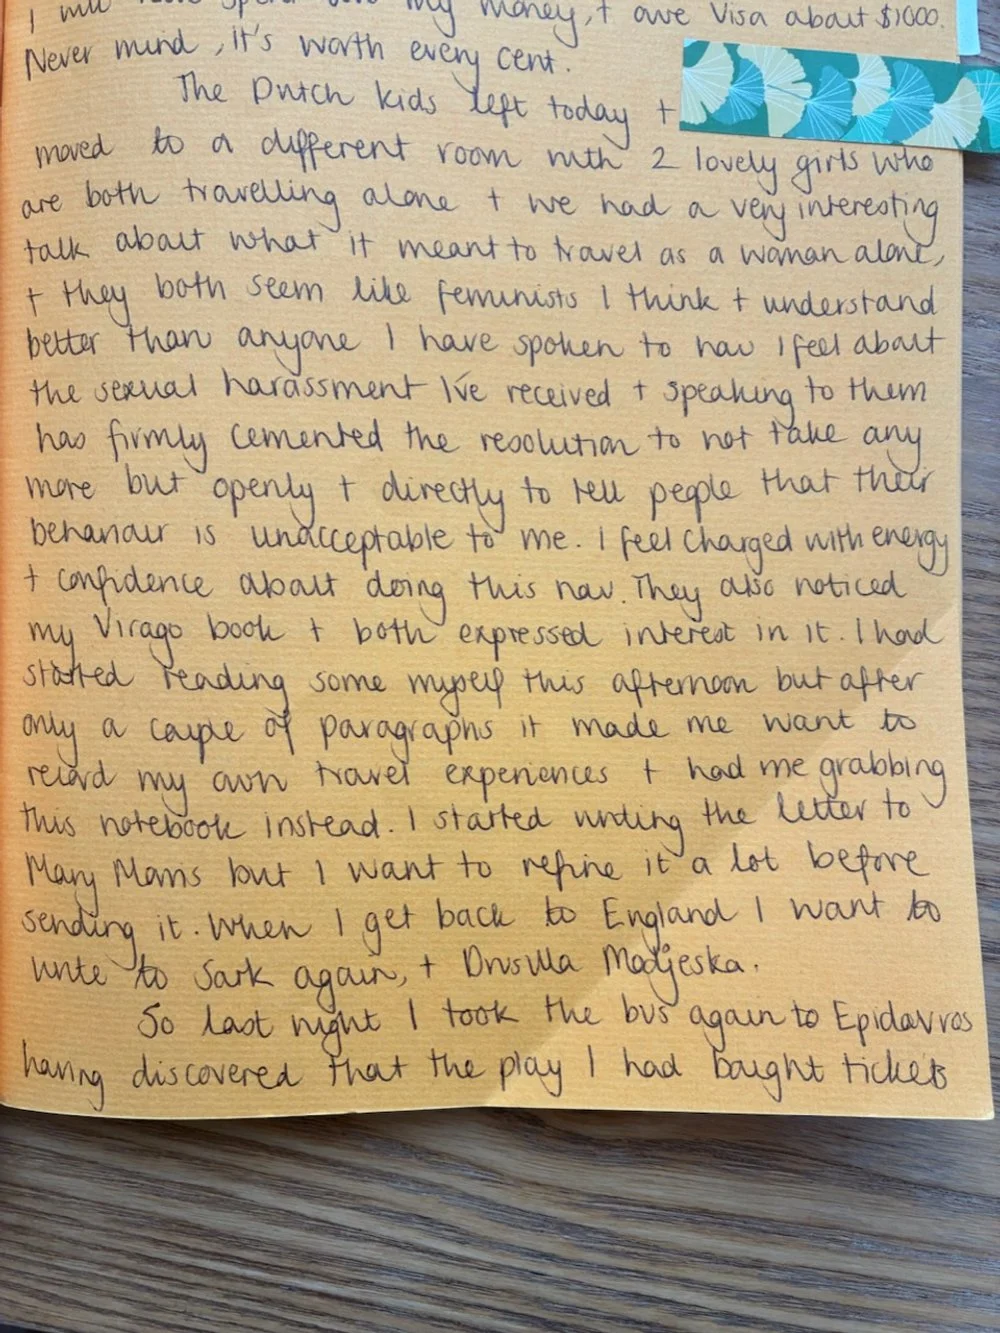 I will have spent my money, + owe Visa about $1000.
Never mind, it's worth every cent.
The Dutch kids left today +
moved to a different room with 2 lovely girls who
are both travelling alone + we had a very interesting
talk about what it meant to travel as a woman alone,
+ they both seem like feminists I think + understand
better than anyone I have spoken to how I feel about
the sexual harassment I've received + speaking to them
has firmly cemented the resolution to not take any
more but openly + directly to tell people that their
behaviour is unacceptable to me. I feel charged with energy
+ confidence about doing this now. They also noticed
my Virago book + both expressed interest in it. I had
started reading some myself this afternoon but after
only a couple of paragraphs it made me want to
record my own travel experiences + had me grabbing
this notebook instead. I started writing the letter to
Mary Morris but I want to refine it a lot before
sending it. When I get back to England I want to
write to Sark again, + Drusilla Modjeska.
So last night I took the bus again to Epidavros
having discovered that the play I had bought tickets